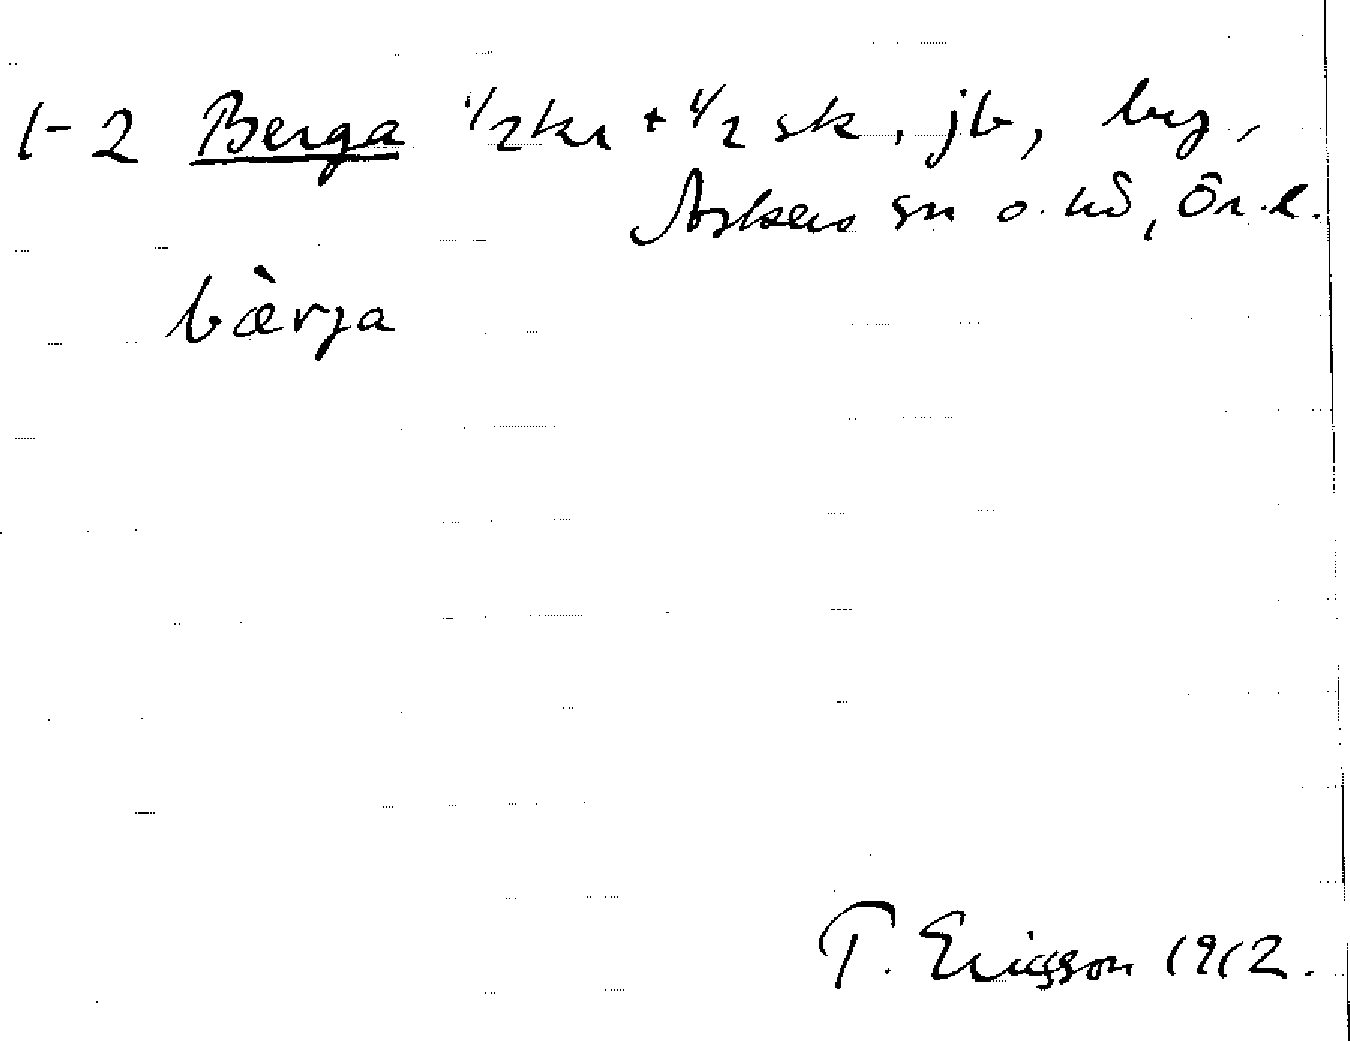 1-2 Berga 1/2 kr + 1/2 sk, jb, by,
Askers sn o. hd, Ör. l.
bæ̀rja
T. Ericsson 1912.